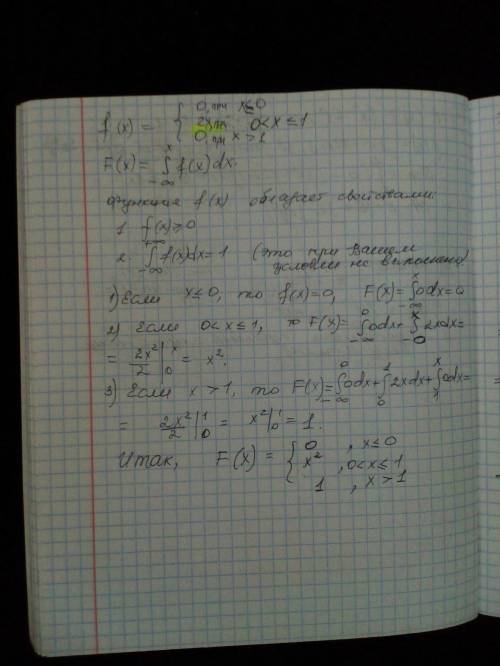 f(x) = { 0, при x ≤ 0
2x, при 0 < x ≤ 1
0, при x > 1
F(x) = ∫_{-∞}^{x} f(x)dx.
Функция f(x) обладает свойствами:
1. f(x) ≥ 0
2. ∫_{-∞}^{+∞} f(x)dx = 1 (это при Вашем
условии не выполнено)
1) Если x ≤ 0, то f(x) = 0, F(x) = ∫_{-∞}^{x} 0dx = 0
2) Если 0 < x ≤ 1, то F(x) = ∫_{-∞}^{0} 0dx + ∫_{0}^{x} 2xdx =
= 2x²/2 |_{0}^{x} = x².
3) Если x > 1, то F(x) = ∫_{-∞}^{0} 0dx + ∫_{0}^{1} 2xdx + ∫_{1}^{x} 0dx =
= 2x²/2 |_{0}^{1} = x² |_{0}^{1} = 1.
Итак, F(x) = { 0, x ≤ 0
x², 0 < x ≤ 1
1, x > 1